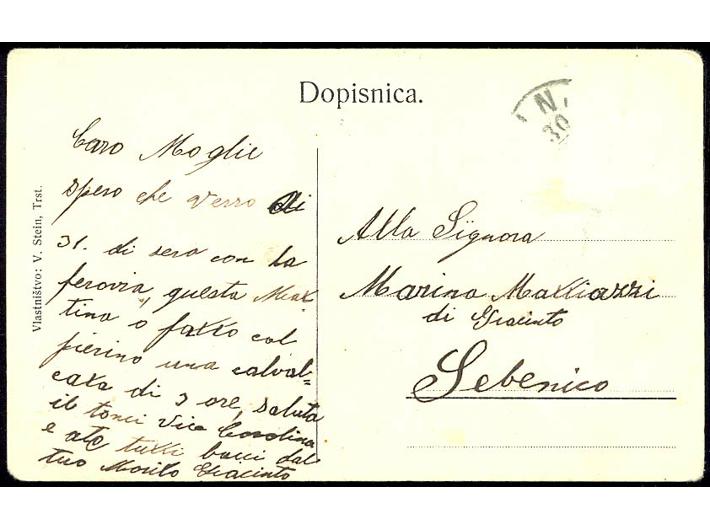 Dopisnica.
N.
30
Vlastništvo: V. Stein, Trst.
Caro Moglie
spero che verro di
31. di sera con la
ferovia, questa Mat
tina o fatto col
pierino una calval=
cata di 3 ore, saluta
il tonci Vice Carolina
e atc tutti bacci dal
tuo Marito Giacinto
Alla Signora
Marina Mattiazzi
di Giacinto
Sebenico